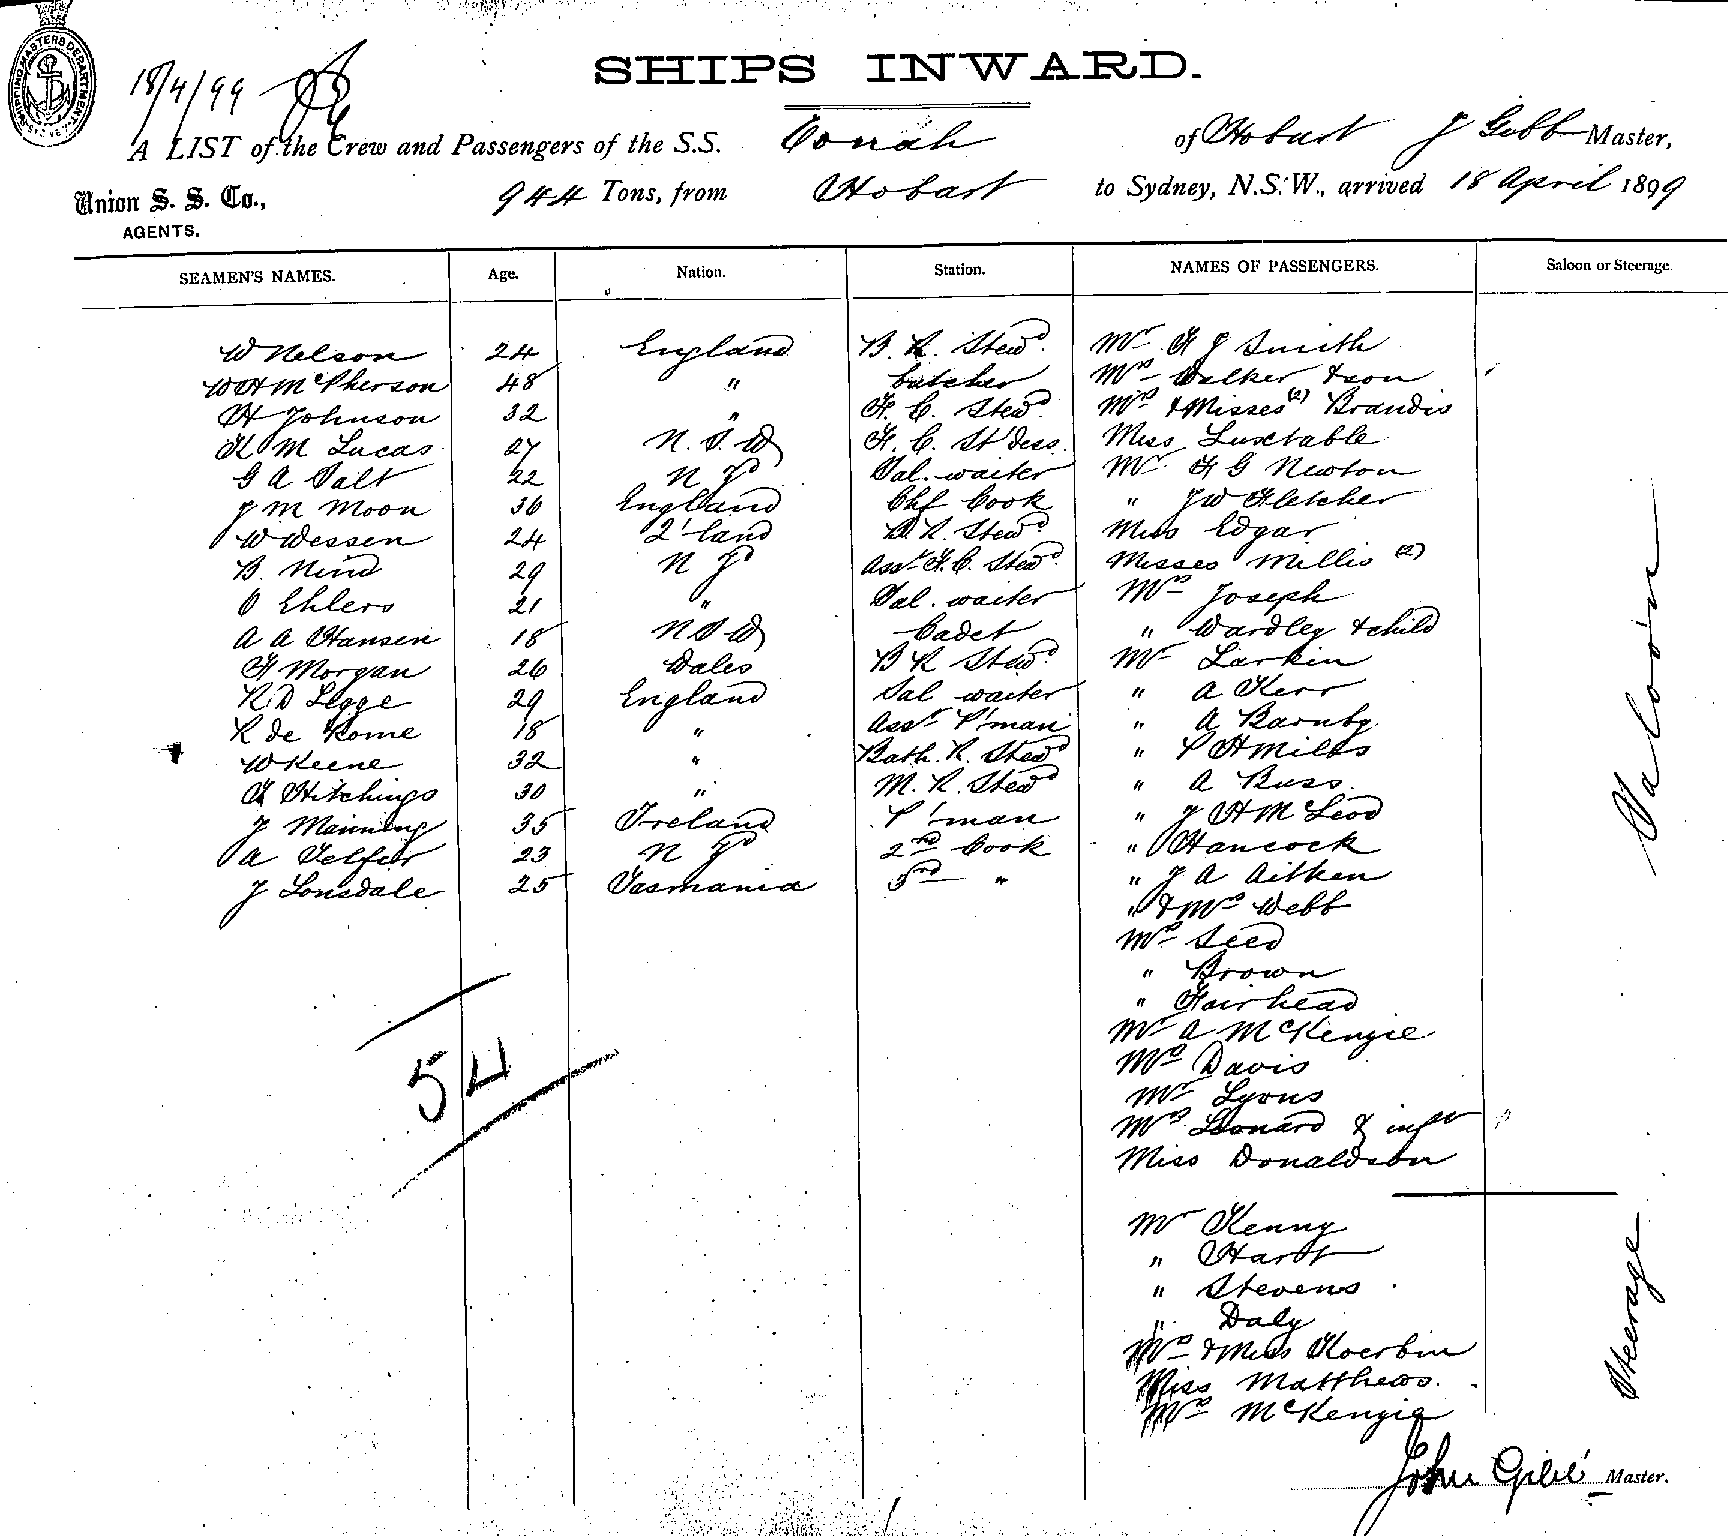 18/4/99
SHIPS INWARD.
A LIST of the Crew and Passengers of the S.S. Oonah of Hobart J Gibb Master,
Union S. S. Co., 944 Tons, from Hobart to Sydney, N.S.W., arrived 18 April 1899
AGENTS.
SEAMEN'S NAMES. Age. Nation. Station. NAMES OF PASSENGERS. Saloon or Steerage
W Nelson 24 England B. R. Stewd. Mr F J Smith
W H McPherson 48 " butcher Mrs Walker & son
H Johnson 32 " F. C. Stewd. Mrs & Misses (2) Brandis
K M Lucas 27 N. S. W F. C. St'dess. Miss Luxtable
G A Salt 22 N Zd Sal. waiter Mr. F G Newton
J M Moon 36 England Chf Cook " J W Fletcher
W Wessen 24 Q'land B. R. Stewd Miss Edgar
B. Nind 29 N Zd Asst F. C. Stewd. Misses Millis (2)
O Ehlers 21 " Sal. waiter Mrs Joseph
A A Hansen 18 N S W Cadet " Wardley & child
F Morgan 26 Wales B R Stewd. Mr Larkin
R D Legge 29 England Sal waiter " A Kerr
R de Rome 18 " Asst P'man " A Barnby.
W Keene 32 " Bath. R. Stewd " P H Miles
F Hitchings 30 " M. R. Stewd " A Buss.
J Manning 35 Ireland P'man " J H McLeod
A Telfer 23 N Zd 2nd Cook " Hancock
J Lonsdale 25 Tasmania 3rd " " J A Aitken
" & Mrs Webb
Mrs Seed
" Brown
" Fairhead
Mr A McKenzie
Mrs Davis
Mr Lyons
Mrs Leonard & inft
Miss Donaldson
Saloon
54
Mr Kenny
" Hardt
" Stevens
" Daly
Mrs & Miss Koerbin
Miss Matthews.
Mrs McKenzie
Steerage
John Gibb Master.